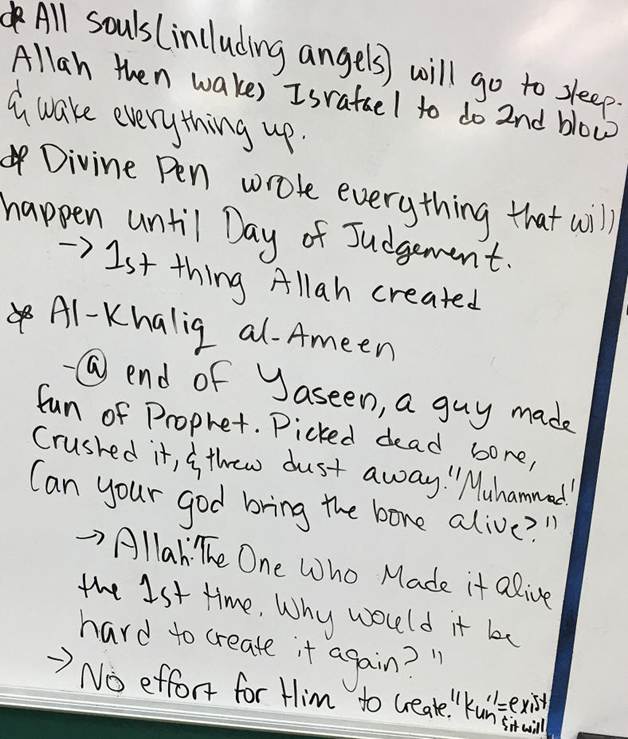 * All souls (including angels) will go to sleep.
Allah then wakes Israfael to do 2nd blow
& wake everything up.
* Divine Pen wrote everything that will
happen until Day of Judgement.
-> 1st thing Allah created
* Al-Khaliq al-Ameen
-@ end of Yaseen, a guy made
fun of Prophet. Picked dead bone,
crushed it, & threw dust away. "Muhammad!
Can your god bring the bone alive?"
-> Allah: "The One Who Made it alive
the 1st time. Why would it be
hard to create it again?"
-> No effort for Him to create. "Kun"=exist
& it will